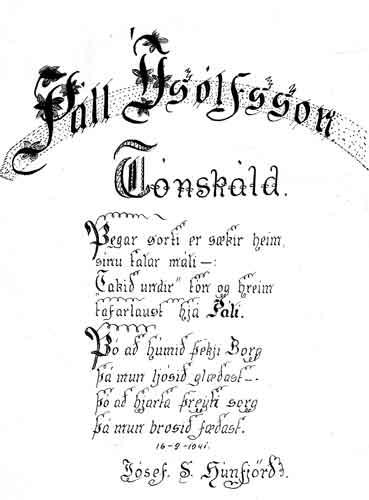 Páll Ísólfsson
Tónskáld.
Þegar sorti er sækir heim,
sínu talar máli —:
Takið undir" tón og hreim
tafarlaust hjá Páli.
Þó að húmið þekji Borg
þá mun ljósið glæðast —.
þó að hjarta þreyti sorg
þá mun brosið fæðast.
16-9-1941.
Jósef. S. Húnfjörð.